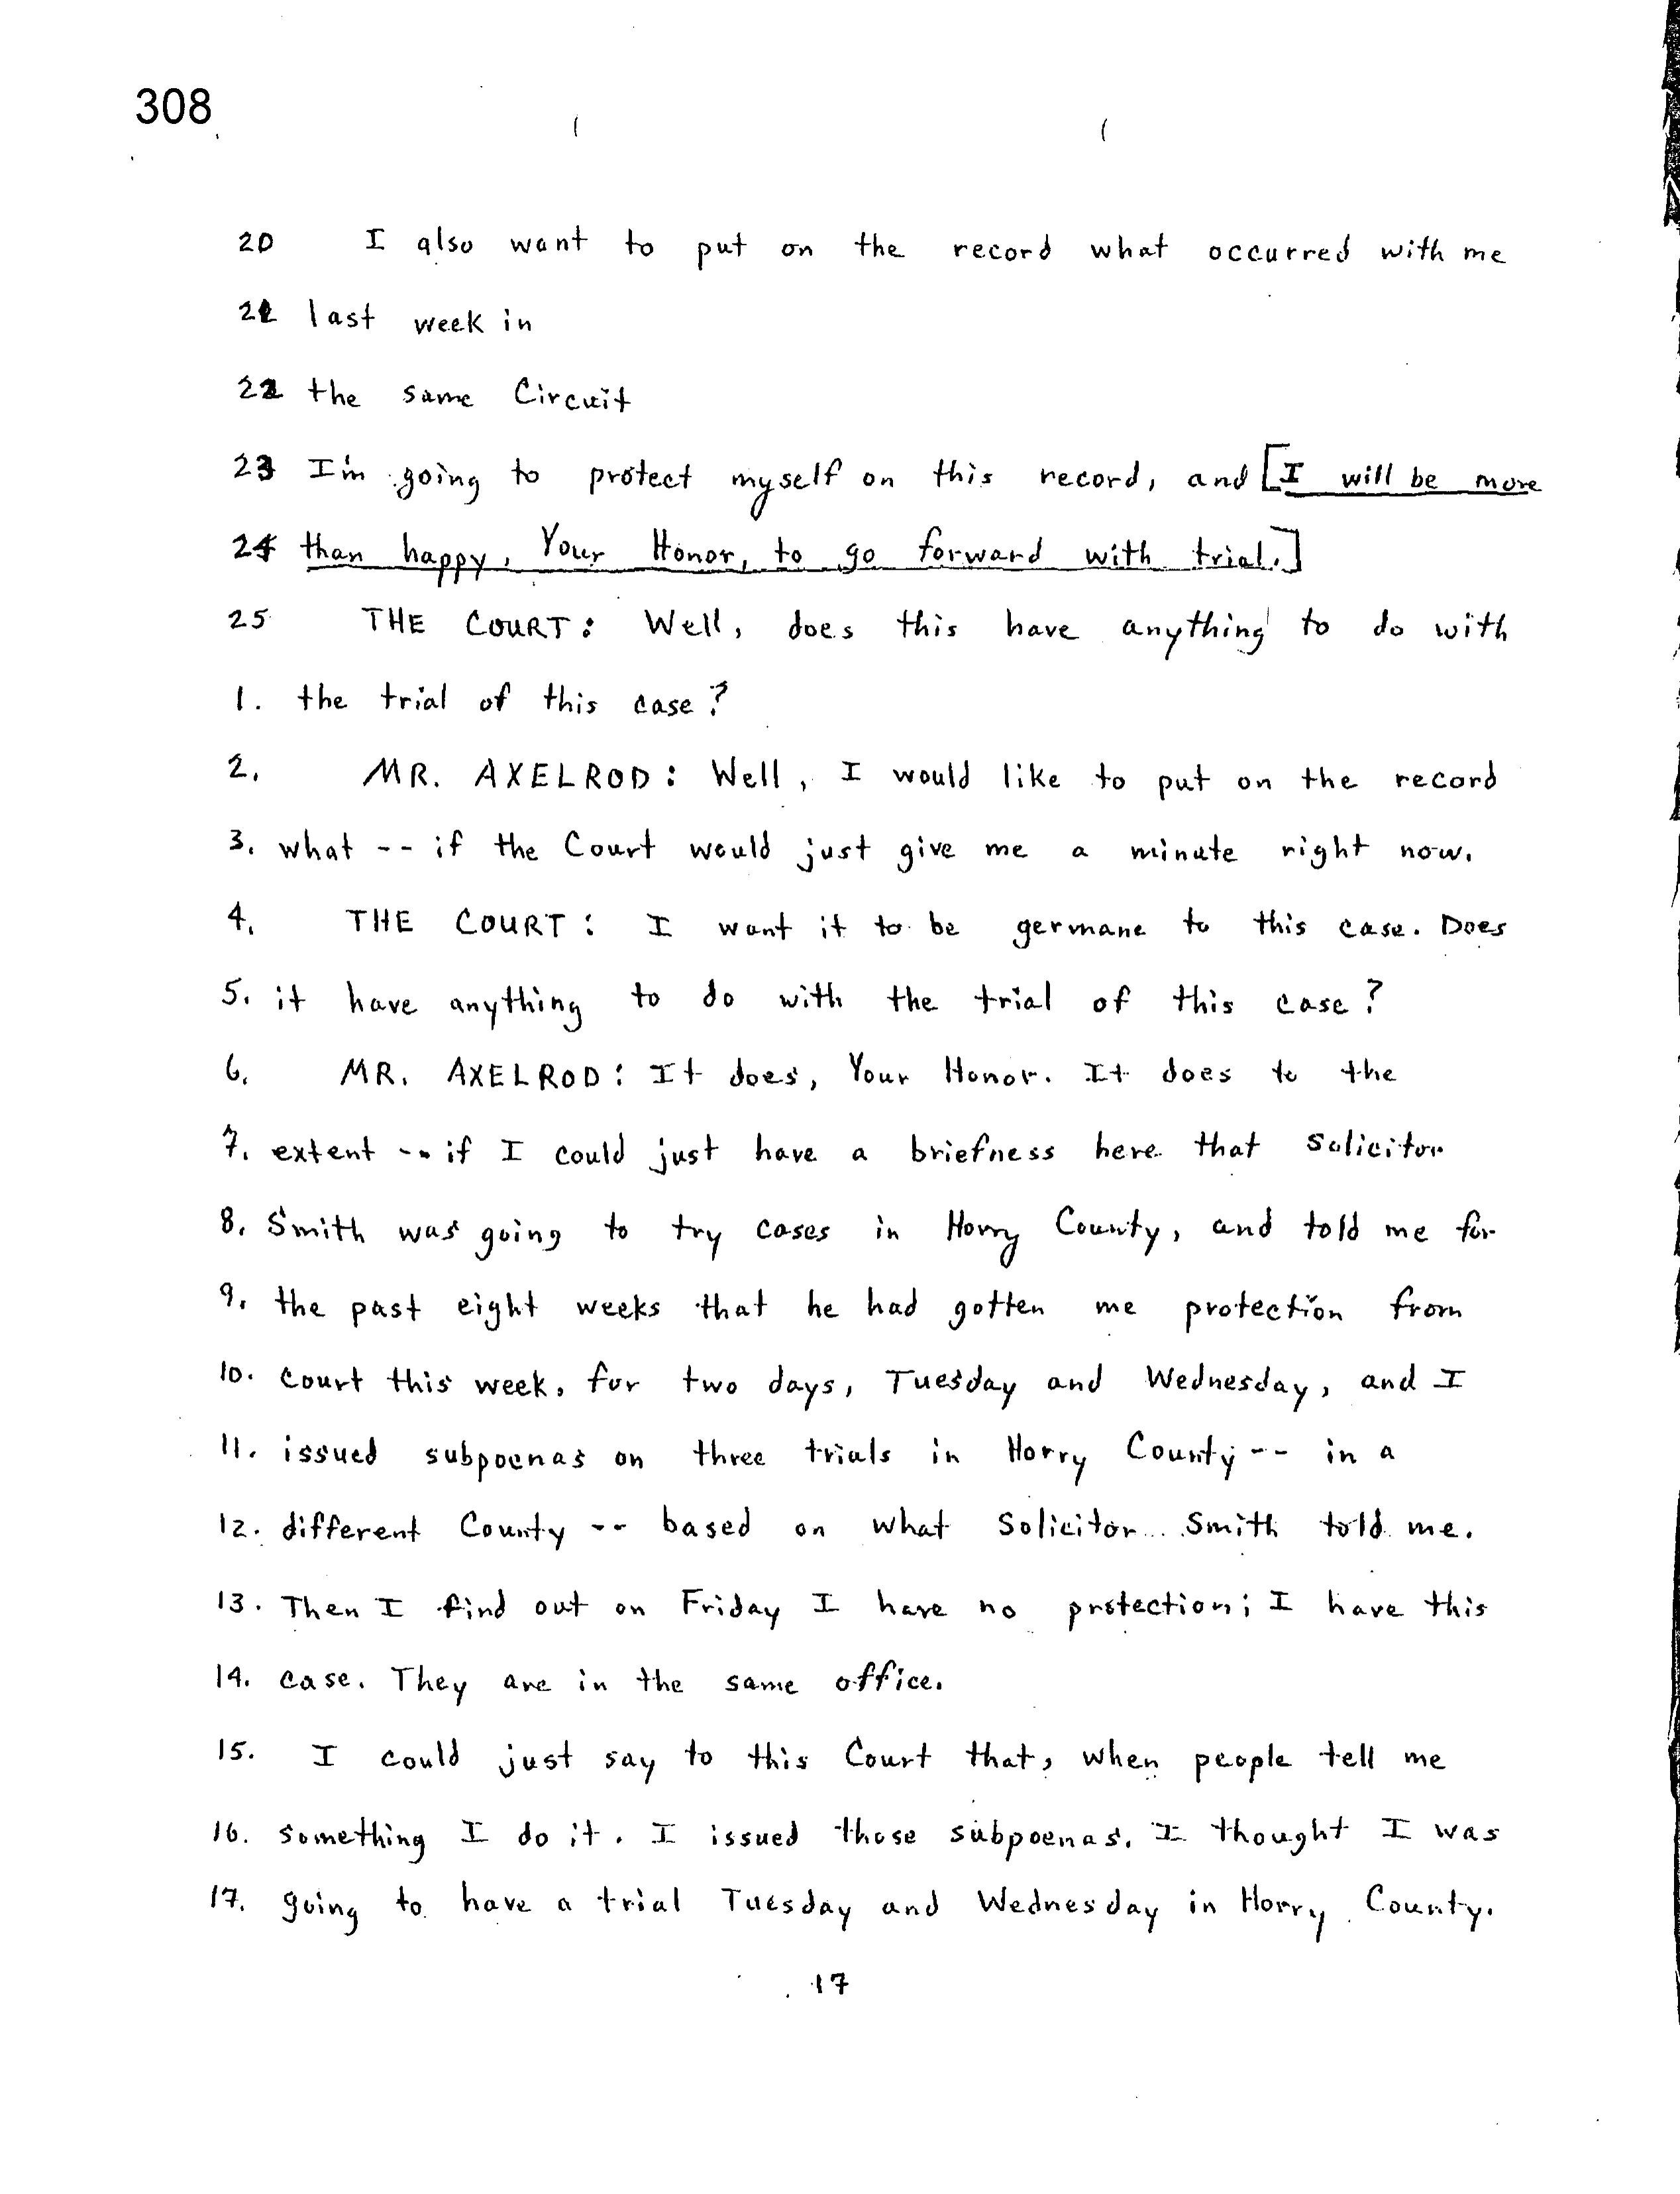 308
20 I also want to put on the record what occurred with me
21 last week in
22 the same Circuit
23 I'm going to protect myself on this record, and [I will be more
24 than happy, Your Honor, to go forward with trial.]
25 THE COURT: Well, does this have anything to do with
1. the trial of this case?
2. MR. AXELROD: Well, I would like to put on the record
3. what -- if the Court would just give me a minute right now.
4. THE COURT: I want it to be germane to this case. Does
5. it have anything to do with the trial of this case?
6. MR. AXELROD: It does, Your Honor. It does to the
7. extent -- if I could just have a briefness here that Solicitor
8. Smith was going to try cases in Horry County, and told me for
9. the past eight weeks that he had gotten me protection from
10. court this week, for two days, Tuesday and Wednesday, and I
11. issued subpoenas on three trials in Horry County -- in a
12. different County -- based on what Solicitor Smith told me.
13. Then I find out on Friday I have no protection; I have this
14. case. They are in the same office.
15. I could just say to this Court that, when people tell me
16. something I do it. I issued those subpoenas. I thought I was
17. going to have a trial Tuesday and Wednesday in Horry County.
17